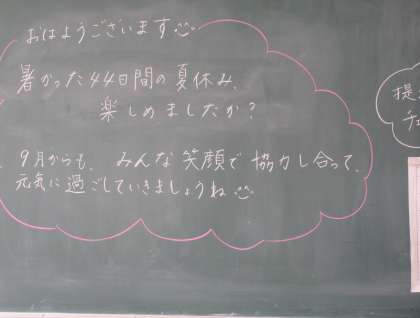 おはようございます
暑かった44日間の夏休み、
楽しめましたか？
9月からも、みんな笑顔で協力し合って、
元気に過ごしていきましょうね
提
チ